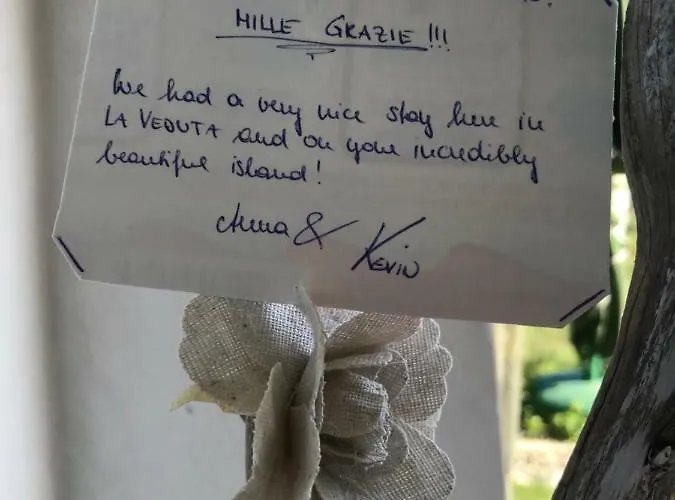 MILLE GRAZIE !!!
We had a very nice stay here in
LA VEDUTA and on your incredibly
beautiful island!
Anna & Kevin